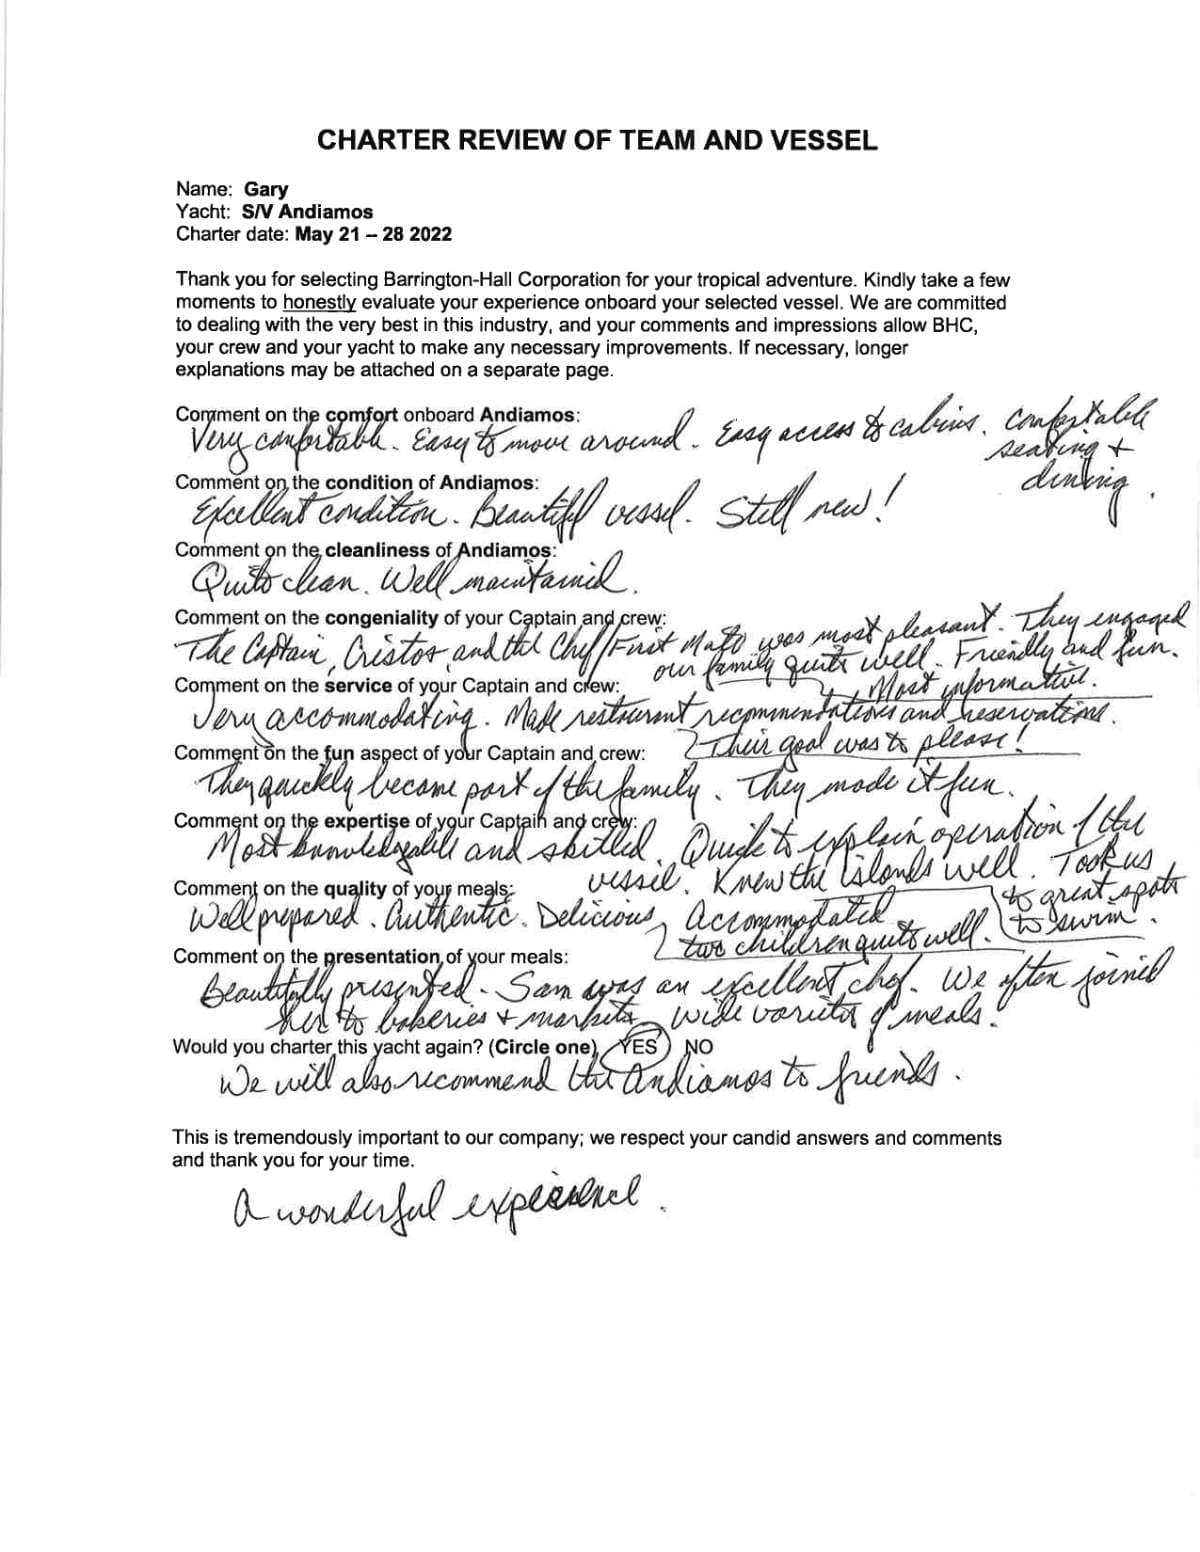 CHARTER REVIEW OF TEAM AND VESSEL
Name: Gary
Yacht: S/V Andiamos
Charter date: May 21 – 28 2022
Thank you for selecting Barrington-Hall Corporation for your tropical adventure. Kindly take a few
moments to honestly evaluate your experience onboard your selected vessel. We are committed
to dealing with the very best in this industry, and your comments and impressions allow BHC,
your crew and your yacht to make any necessary improvements. If necessary, longer
explanations may be attached on a separate page.
Comment on the comfort onboard Andiamos:
Very comfortable. Easy to move around. Easy access to cabins. Comfortable
seating +
dining.
Comment on the condition of Andiamos:
Excellent condition. Beautiful vessel. Still new!
Comment on the cleanliness of Andiamos:
Quite clean. Well maintained.
Comment on the congeniality of your Captain and crew:
The Captain, Cristos, and the Chef/First Mate was most pleasant. They engaged
our family quite well. Friendly and fun.
Most informative.
Comment on the service of your Captain and crew:
Very accommodating. Made restaurant recommendations and reservations.
Their goal was to please!
Comment on the fun aspect of your Captain and crew:
They quickly became part of the family. They made it fun.
Comment on the expertise of your Captain and crew:
Most knowledgable and skilled. Quick to explain operation of the
vessel. Knew the islands well. Took us
to great spots
to swim.
Comment on the quality of your meals:
Well prepared. Authentic. Delicious, Accommodated
two children quite well.
Comment on the presentation of your meals:
Beautifully presented. Sam was an excellent chef. We often joined
her to bakeries + markets. Wide variety of meals.
Would you charter this yacht again? (Circle one) YES NO
We will also recommend the Andiamos to friends.
This is tremendously important to our company; we respect your candid answers and comments
and thank you for your time.
A wonderful experience.